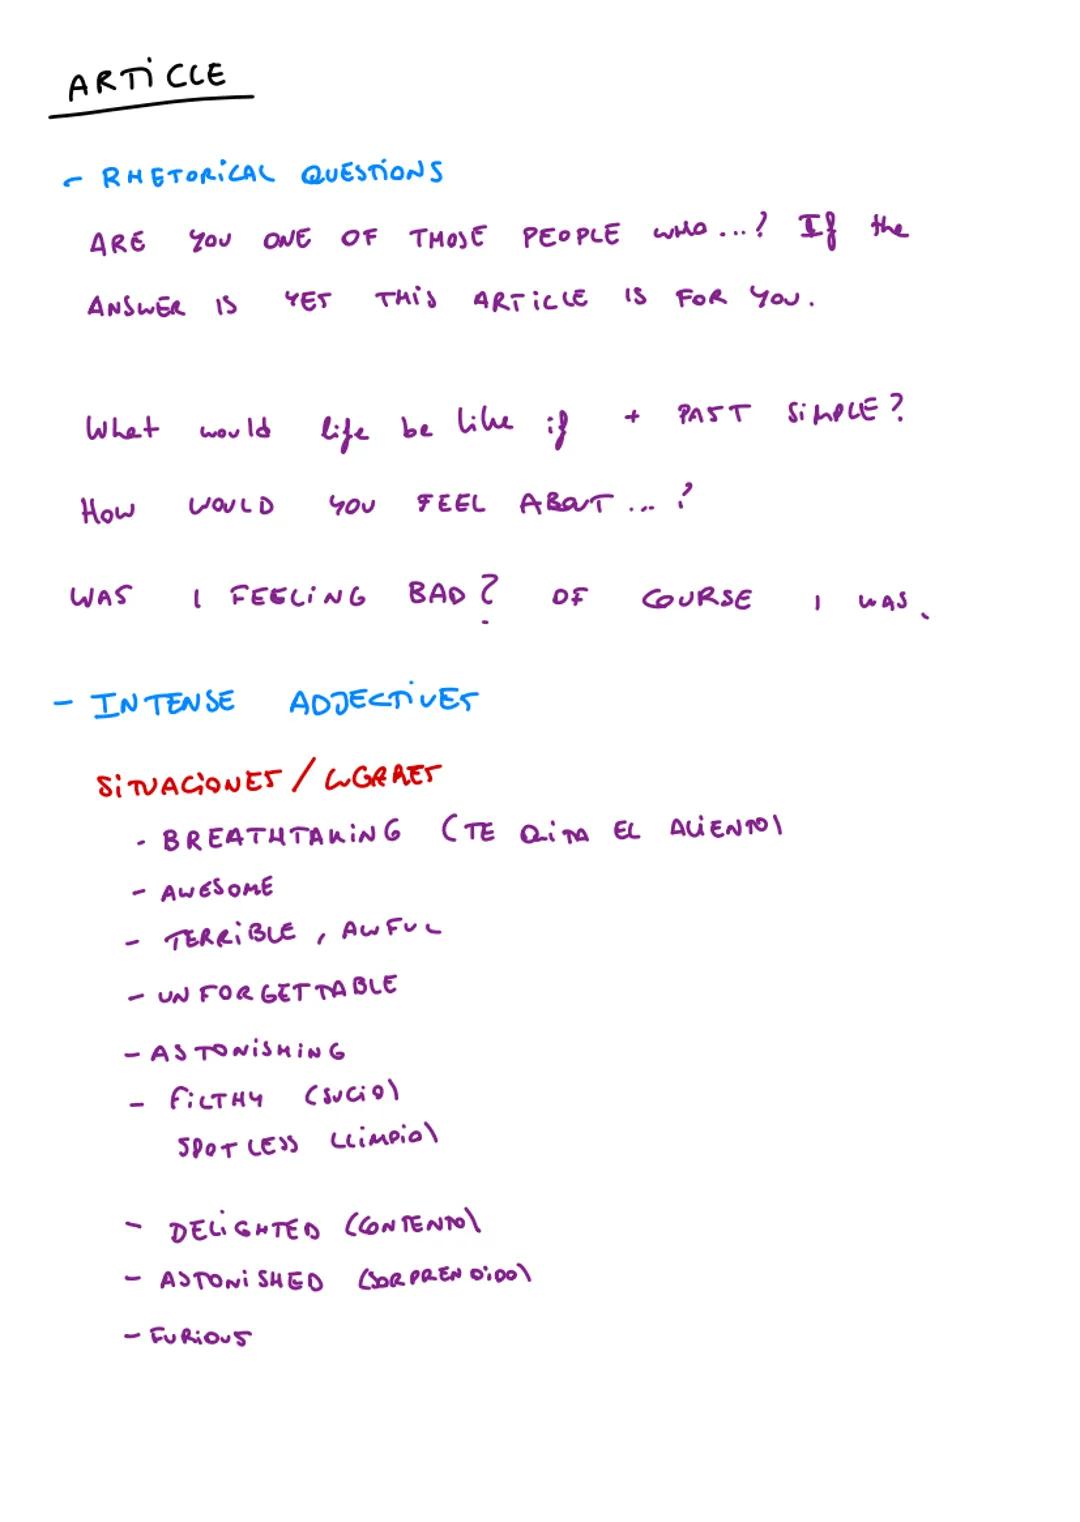 ARTiCLE
- RHETORiCAL QUESTiONS
ARE YOU ONE OF THOSE PEOPLE WHO...? If the
ANSWER IS YES THiS ARTiCLE IS FOR YOU.
What would life be like if + PAST SiMPLE?
How WOULD YOU FEEL ABOUT ... ?
WAS I FEELiNG BAD? OF COURSE I WAS.
- INTENSE ADJECTiVES
SiTUACiONES / LUGARES
- BREATHTAKiNG (TE QUiTA EL ALiENTO)
- AWESOME
- TERRiBLE, AWFUL
- UNFORGETTABLE
- ASTONiSHiNG
- FiLTHY (SUCiO)
SPOTLESS (LiMPiO)
- DELiGHTED (CONTENTO)
- ASTONiSHED (SORPRENDiDO)
- FURiOUS